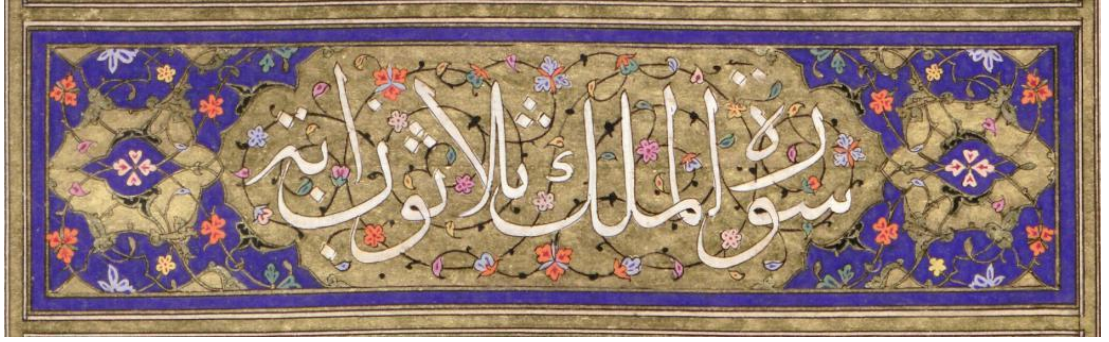 سورة الملك ثلاثون اية